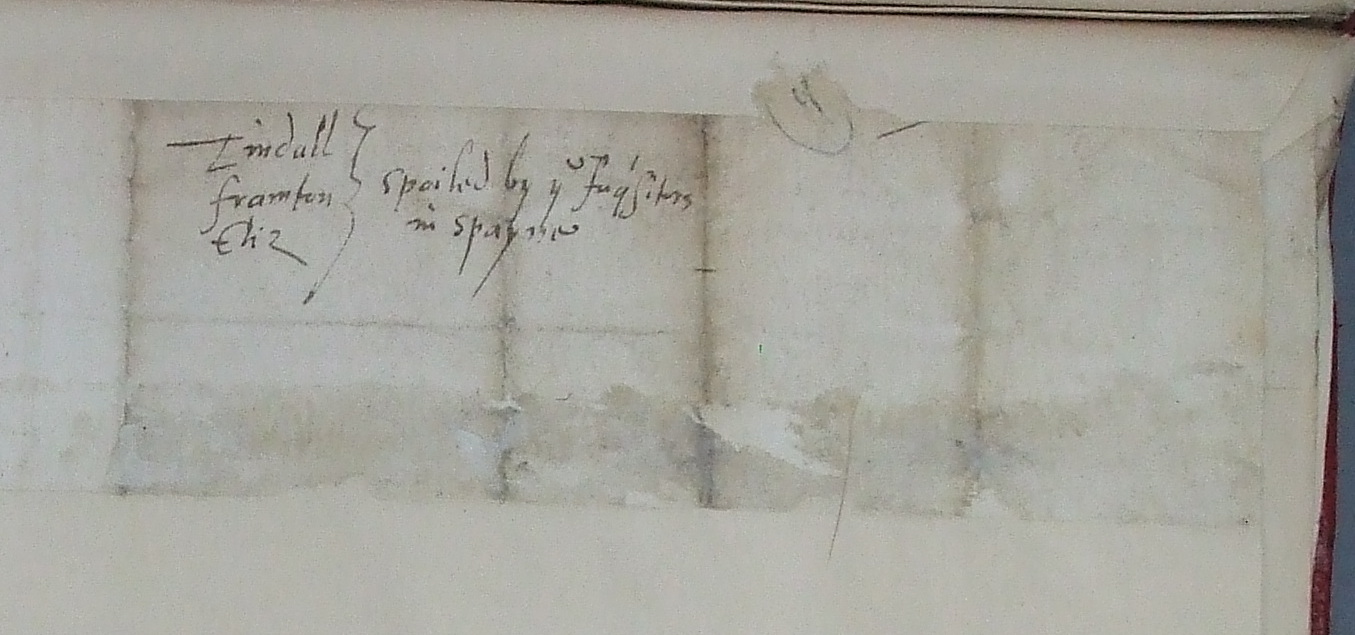 Tindall
framton } spoiled by ye Inq'sitors
Eliz in spayne